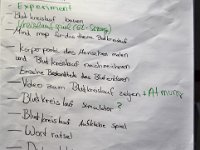 - Experiment
Blutkreislauf bauen
Kreislauf
- Mind map für das Thema Blutkreislauf
- Körperpartie des Menschen malen
und Blutkreislauf nachzeichnen
- Einzelne Bestandteile des Blutes
- Video zum Blutkreislauf zeigen + Atmung
- Blutkreislauf simulator ?
- Blutkreislauf Aufkleber Spiel
- Wort rätsel